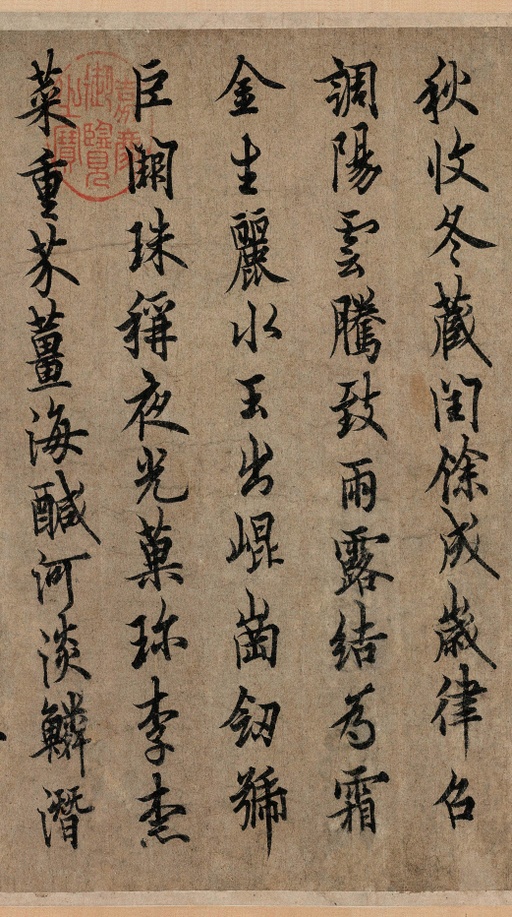 秋收冬藏閏餘成歲律召
調陽雲騰致雨露結為霜
金生麗水玉出崐崗釼號
巨闕珠稱夜光菓珎李柰
菜重芥薑海醎河淡鱗潛
嘉慶御覽之寶